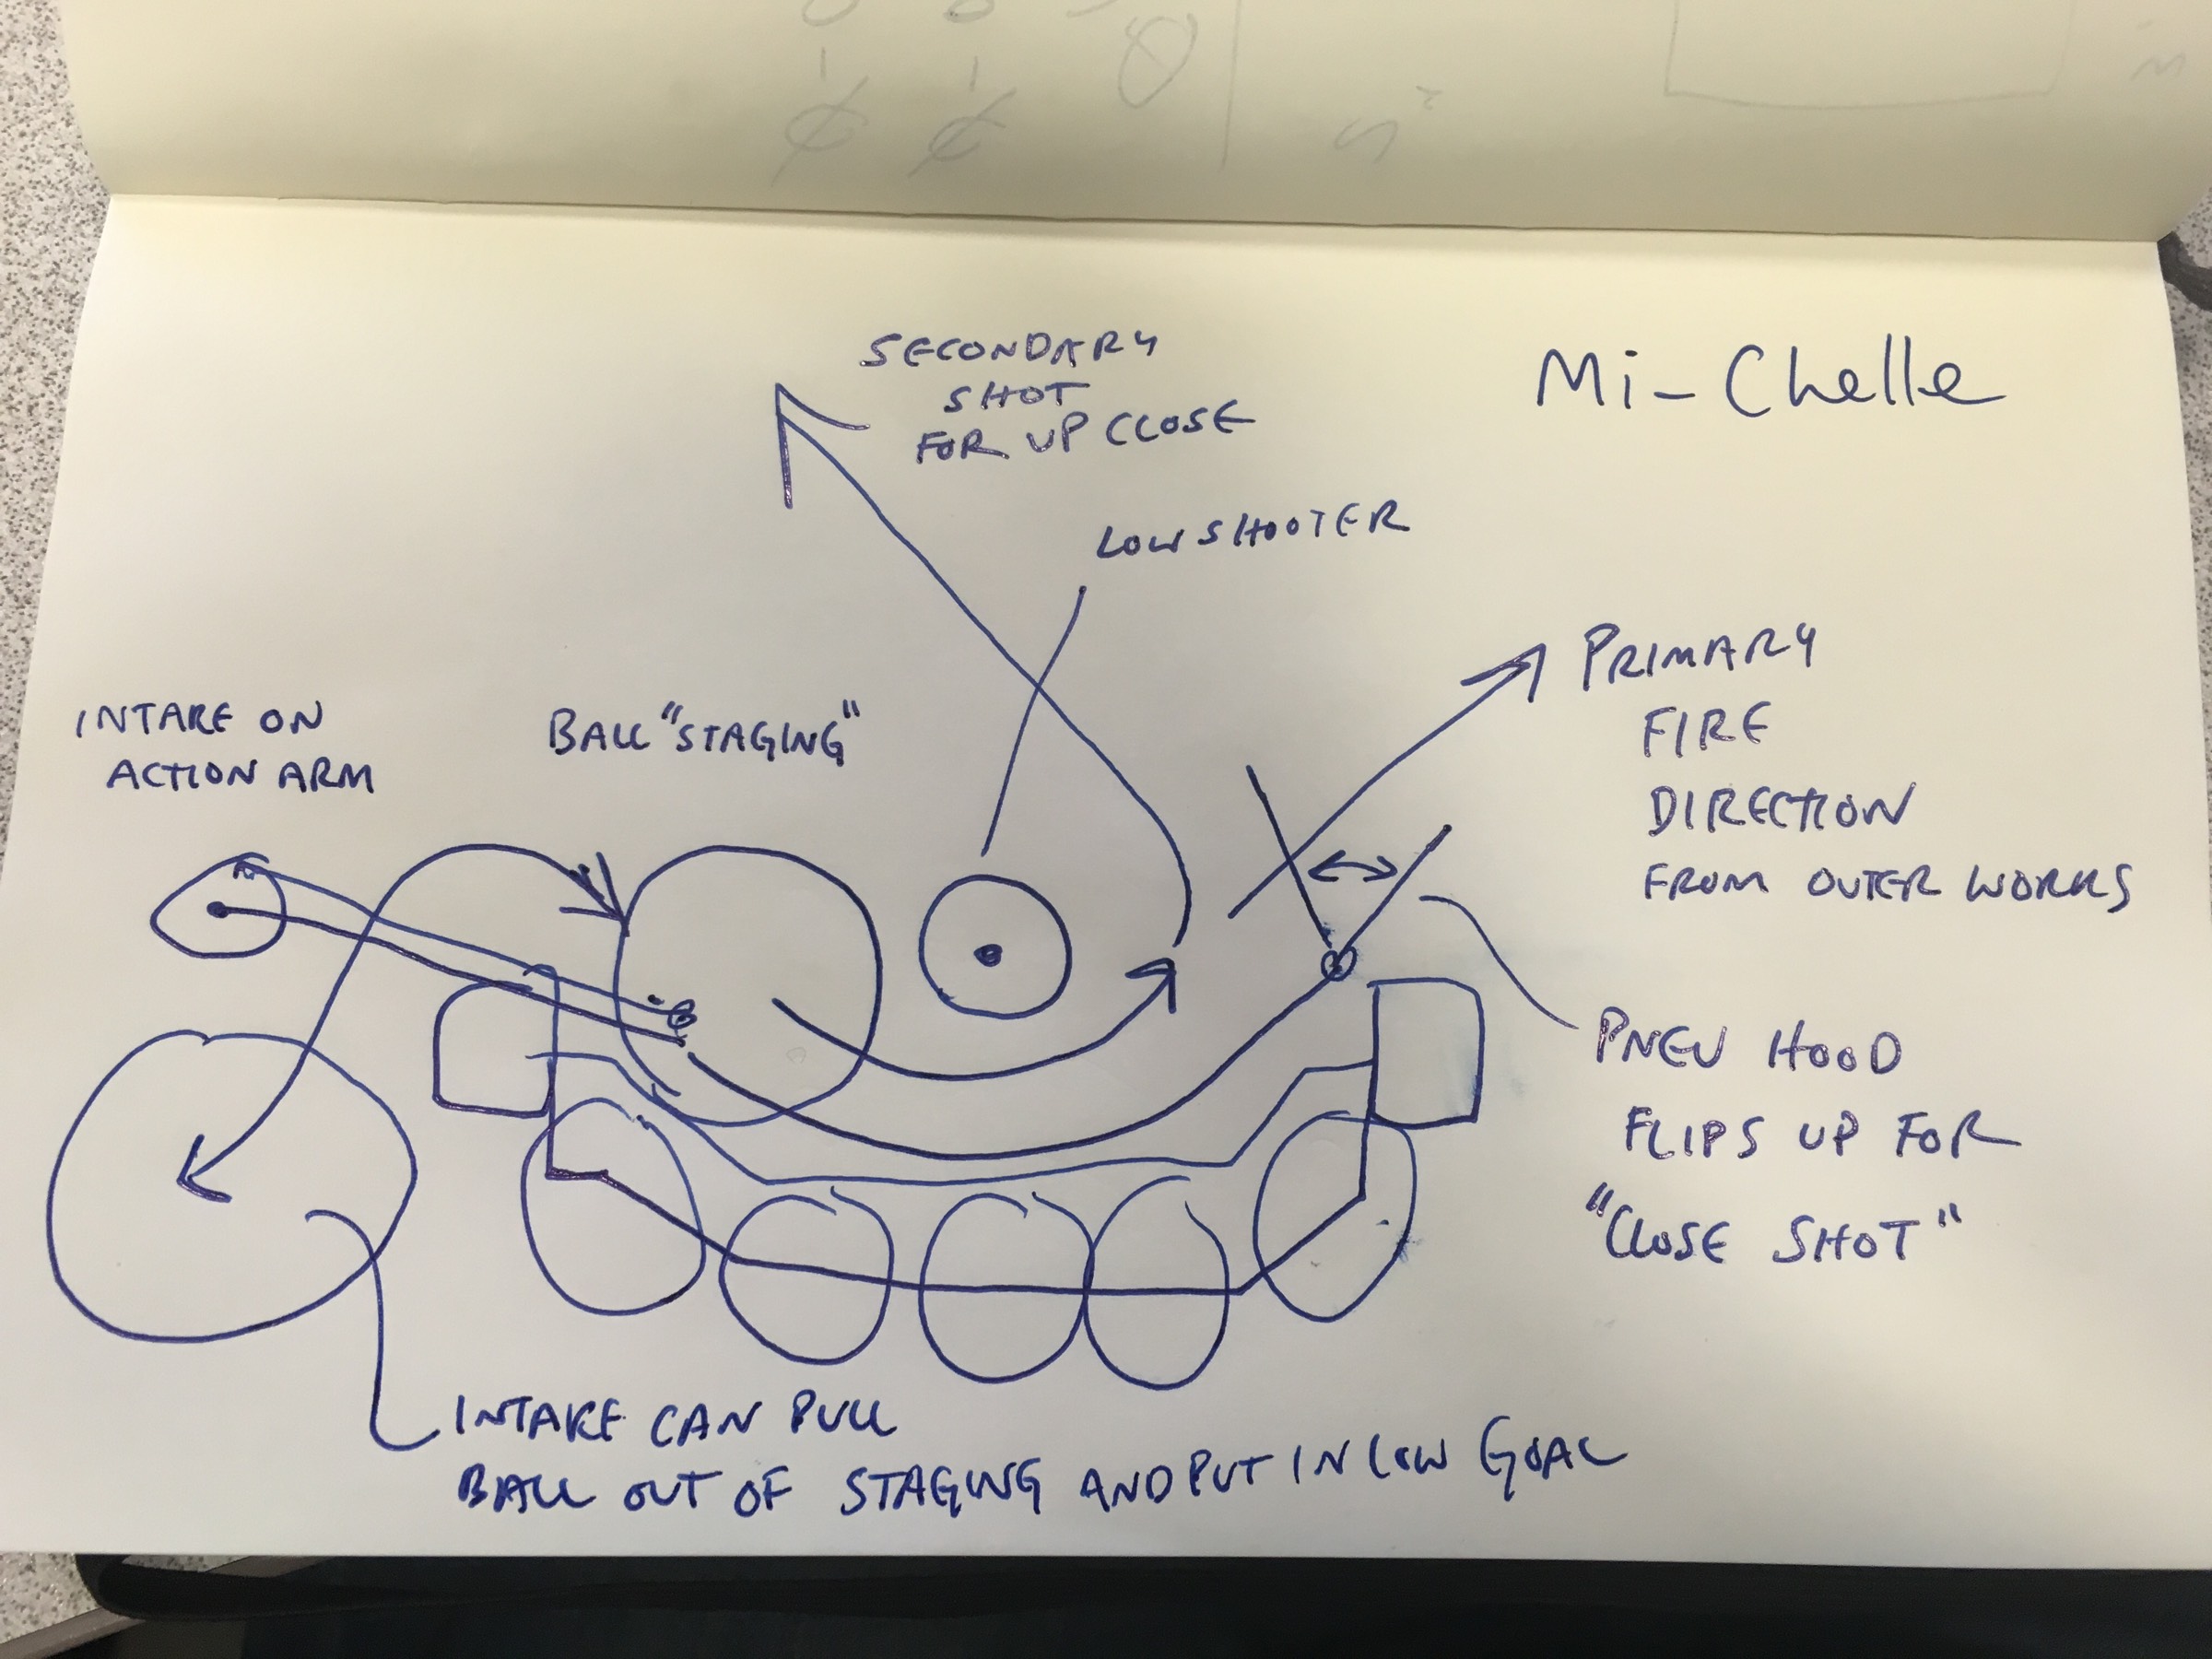 Mi-Chelle
SECONDARY
SHOT
FOR UP CLOSE
LOW SHOOTER
PRIMARY
FIRE
DIRECTION
FROM OUTER WORKS
INTAKE ON
ACTION ARM
BALL "STAGING"
PNEU HOOD
FLIPS UP FOR
"CLOSE SHOT"
INTAKE CAN PULL
BALL OUT OF STAGING AND PUT IN LOW GOAL